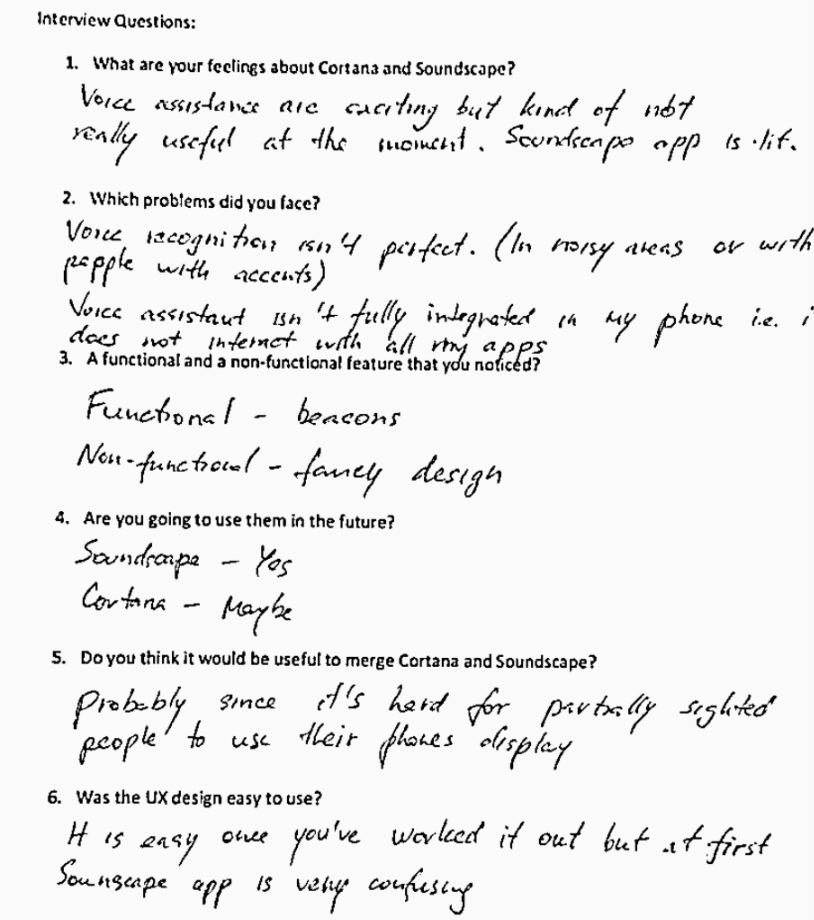 Interview Questions:
1. What are your feelings about Cortana and Soundscape?
Voice assistance are exciting but kind of not
really useful at the moment. Soundscape app is lit.
2. Which problems did you face?
Voice recognition isn't perfect. (In noisy areas or with
people with accents)
Voice assistant isn't fully integrated in my phone i.e. i
does not internet with all my apps
3. A functional and a non-functional feature that you noticed?
Functional - beacons
Non-functional - fancy design
4. Are you going to use them in the future?
Soundscape - Yes
Cortana - Maybe
5. Do you think it would be useful to merge Cortana and Soundscape?
Probably since it's hard for partially sighted
people to use their phones display
6. Was the UX design easy to use?
It is easy once you've worked it out but at first
Sounscape app is very confusing